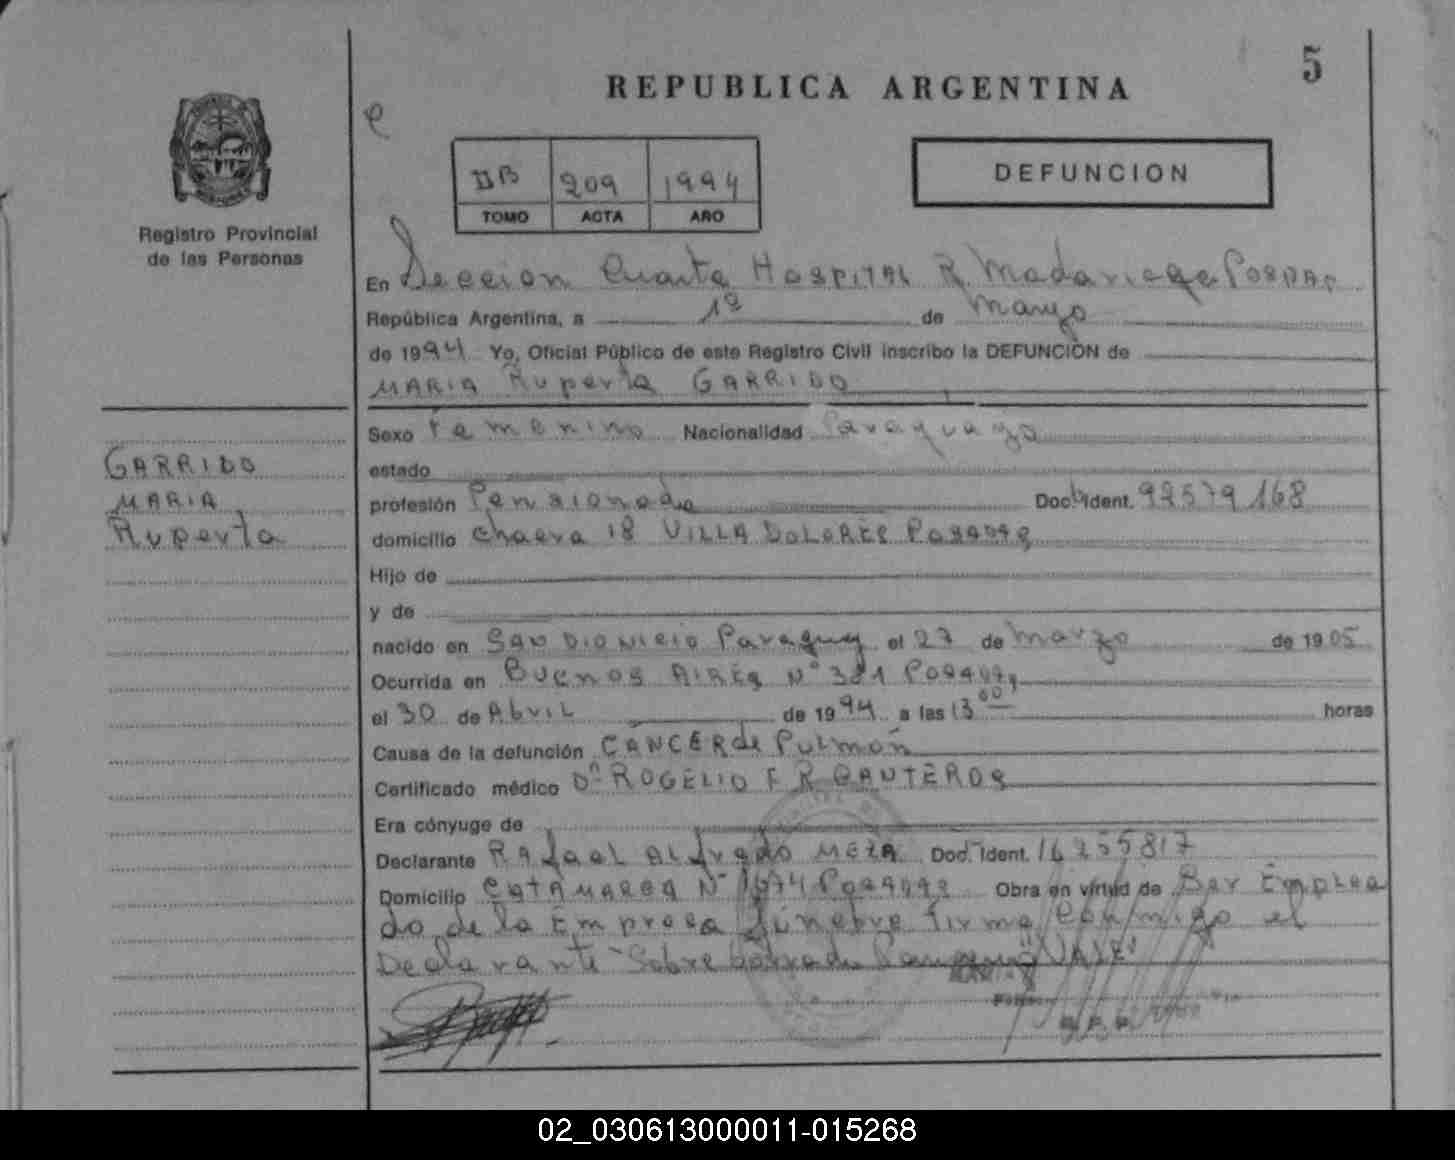 5
REPUBLICA ARGENTINA
DEFUNCION
209 1994
TOMO ACTA AÑO
Registro Provincial
de las Personas
En Seccion Cuarta HOSPITAL R. Madariaga
República Argentina, a 1º de Mayo
de 1994 Yo, Oficial Público de este Registro Civil inscribo la DEFUNCIÓN de
MARIA Ruperta GARRIDO
Sexo Femenino Nacionalidad Paraguaya
GARRIDO
MARIA
Ruperta
estado
profesión Pensionada Doc. Ident. 92579168
domicilio chacra 18 VILLA DOLORES POSADAS
Hijo de
y de
nacido en SAN DIONICIO Paraguay el 27 de Marzo de 1905
Ocurrida en BUENOS AIRES Nº 381 POSADAS
el 30 de Abril de 1994 a las 13 00 horas
Causa de la defunción CANCER de Pulmón
Certificado médico Dr ROGELIO F R CANTEROS
Era cónyuge de
Declarante Rafael Alfredo MEZA Doc. Ident. 16255817
Domicilio CATAMARCA Nº 1674 POSADAS Obra en virtud de Ser Emplea
do de la Empresa fúnebre firma conmigo el
Declarante Sobre "VALE"
02_030613000011-015268